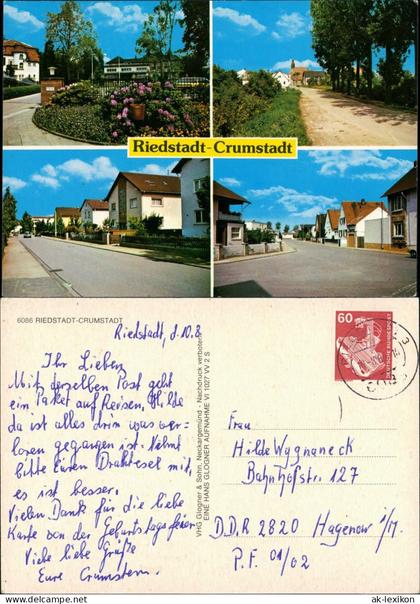 Riedstadt-Crumstadt
6086 RIEDSTADT-CRUMSTADT
Riedstadt, d. 10.8
Ihr Lieben
Mit derselben Post geht
ein Paket auf Reisen, Hilde
da ist alles drin was ver-
loren gegangen ist. Nehmt
bitte Euren Drahtesel mit,
es ist besser.
Vielen Dank für die liebe
Karte von der Geburtstagsfeier
Viele liebe Grüße
Eure Crumster.
VHG Glogner & Sohn, Neckargemünd · Nachdruck verboten
EINE HANS GLOGNER AUFNAHME VI 1027 VV 2 S
60
DEUTSCHE BUNDESPOST
Frau
Hilde Wygnaneck
Bahnhofstr. 127
D.D.R 2820 Hagenow i/M.
P.F. 01/02
© ak-lexikon.de